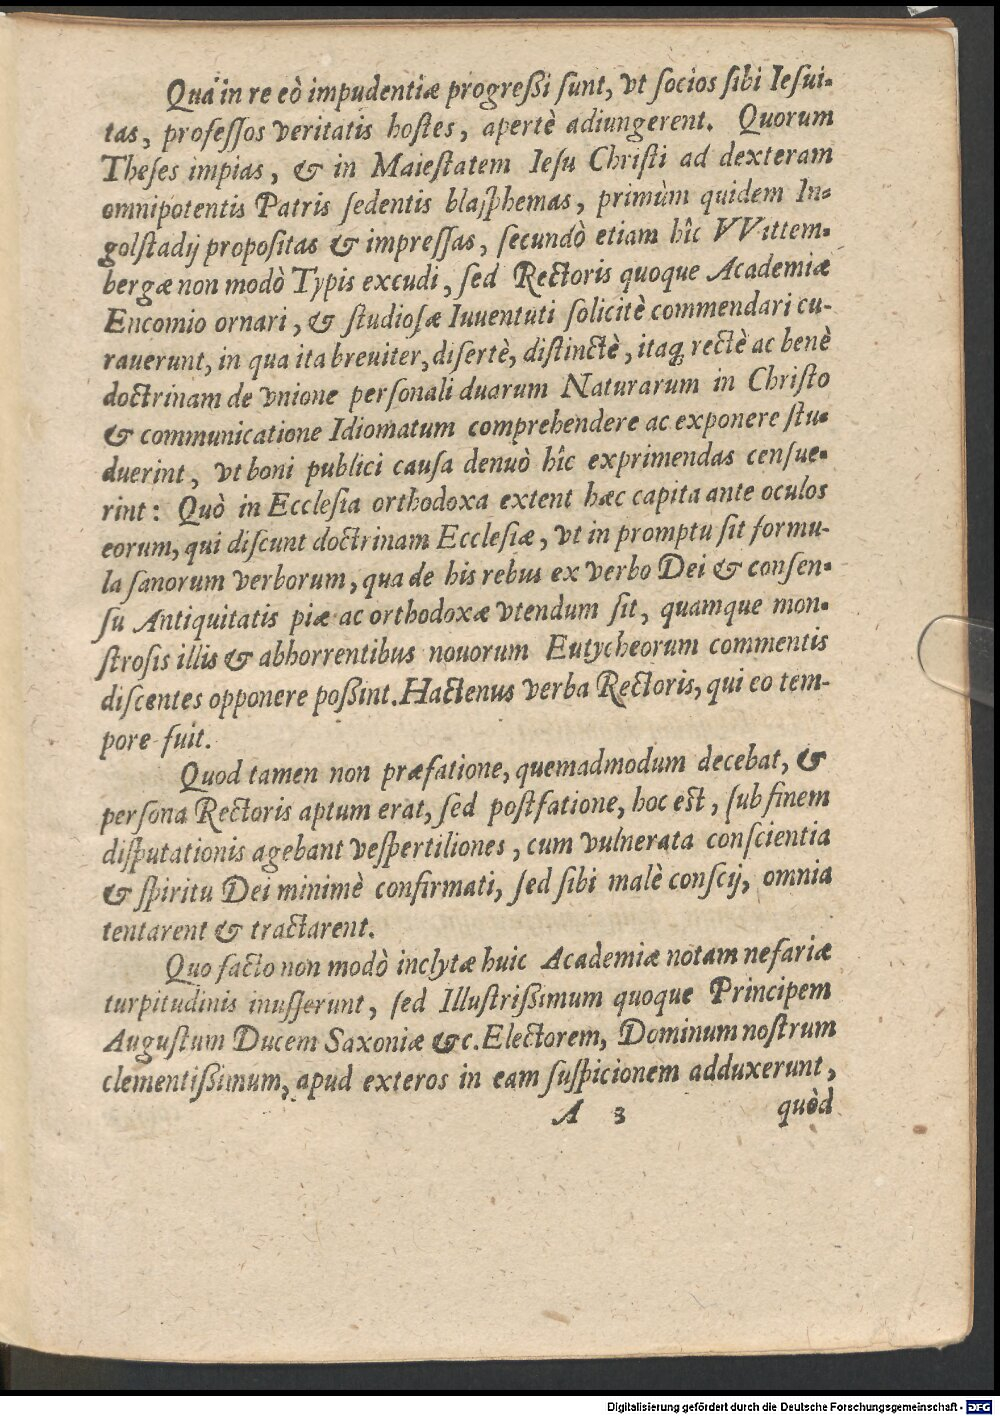 Qua in re eò impudentiæ progreßi ſunt, vt ſocios ſibi Ieſui-
tas, profeſſos veritatis hoſtes, apertè adiungerent. Quorum
Theſes impias, & in Maieſtatem Ieſu Chriſti ad dexteram
omnipotentis Patris ſedentis blaſphemas, primùm quidem In-
golſtadij propoſitas & impreſſas, ſecundò etiam hîc VVittem-
bergæ non modò Typis excudi, ſed Rectoris quoque Academiæ
Encomio ornari, & ſtudioſæ Iuuentuti ſolicitè commendari cu-
rauerunt, in qua ita breuiter, diſertè, diſtinctè, itaq́; rectè ac benè
doctrinam de vnione perſonali duarum Naturarum in Chriſto
& communicatione Idiomatum comprehendere ac exponere ſtu-
duerint, vt boni publici cauſa denuò hîc exprimendas cenſue-
rint: Quò in Eccleſia orthodoxa extent hæc capita ante oculos
eorum, qui diſcunt doctrinam Eccleſiæ, vt in promptu ſit formu-
la ſanorum verborum, qua de his rebus ex verbo Dei & conſen-
ſu Antiquitatis piæ ac orthodoxæ vtendum ſit, quamque mon-
ſtroſis illis & abhorrentibus nouorum Eutycheorum commentis
diſcentes opponere poßint. Hactenus verba Rectoris, qui eo tem-
pore fuit.
Quod tamen non præfatione, quemadmodum decebat, &
perſona Rectoris aptum erat, ſed poſtfatione, hoc eſt, ſub finem
diſputationis agebant veſpertiliones, cum vulnerata conſcientia
& ſpiritu Dei minimè confirmati, ſed ſibi malè conſcij, omnia
tentarent & tractarent.
Quo facto non modò inclytæ huic Academiæ notam nefariæ
turpitudinis inuſſerunt, ſed Illuſtrißimum quoque Principem
Auguſtum Ducem Saxoniæ &c. Electorem, Dominum noſtrum
clementißimum, apud exteros in eam ſuſpicionem adduxerunt,
A 3 quòd
Digitalisierung gefördert durch die Deutsche Forschungsgemeinschaft - DFG